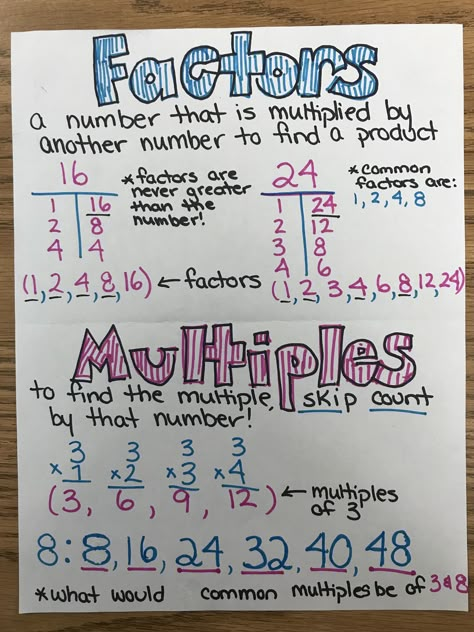 Factors
a number that is multiplied by
another number to find a product
16
1 16
2 8
4 4
*factors are
never greater
than the
number!
(1, 2, 4, 8, 16) ← factors
24
1 24
2 12
3 8
4 6
*common
factors are:
1, 2, 4, 8
(1, 2, 3, 4, 6, 8, 12, 24)
Multiples
to find the multiple, skip count
by that number!
3 3 3 3
x1 x2 x3 x4
(3, 6, 9, 12) ← multiples
of 3
8: 8, 16, 24, 32, 40, 48
*what would common multiples be of 3&8